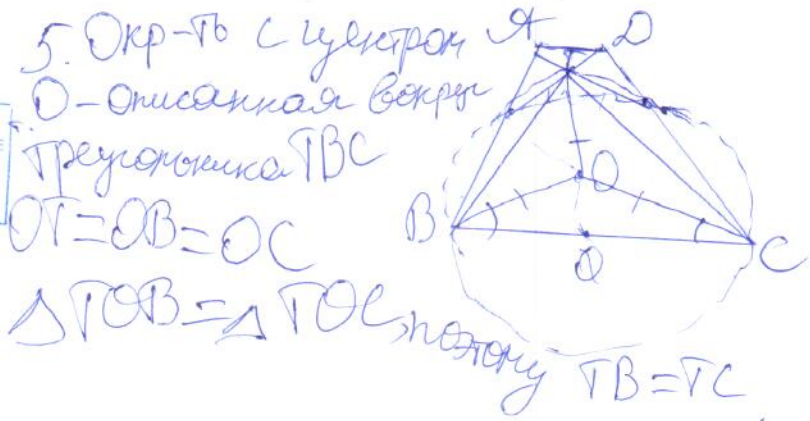 5. Окр-ть с центром
O-описанная вокруг
треугольника TBC
OT=OB=OC
△TOB=△TOC, поэтому TB=TC
A D
O
B Q C